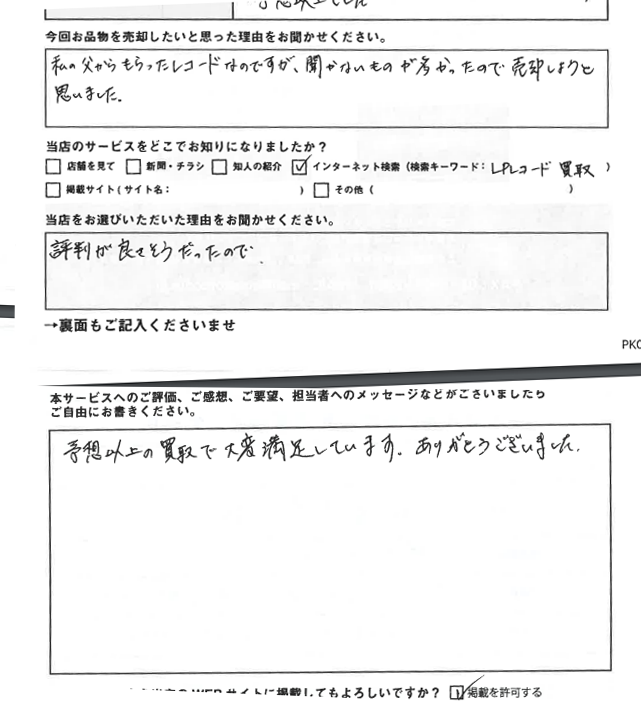 予想以上でした
今回お品物を売却したいと思った理由をお聞かせください。
私の父からもらったレコードなのですが、聞かないものが多かったので売却しようと
思いました。
当店のサービスをどこでお知りになりましたか？
店舗を見て 新聞・チラシ 知人の紹介 インターネット検索（検索キーワード：LPレコード 買取 ）
掲載サイト(サイト名： ) その他（ ）
当店をお選びいただいた理由をお聞かせください。
評判が良さそうだったので.
→裏面もご記入くださいませ
PKC
本サービスへのご評価、ご感想、ご要望、担当者へのメッセージなどがございましたら
ご自由にお書きください。
予想以上の買取で大変満足しています。ありがとうございました.
WEBサイトに掲載してもよろしいですか？ 掲載を許可する